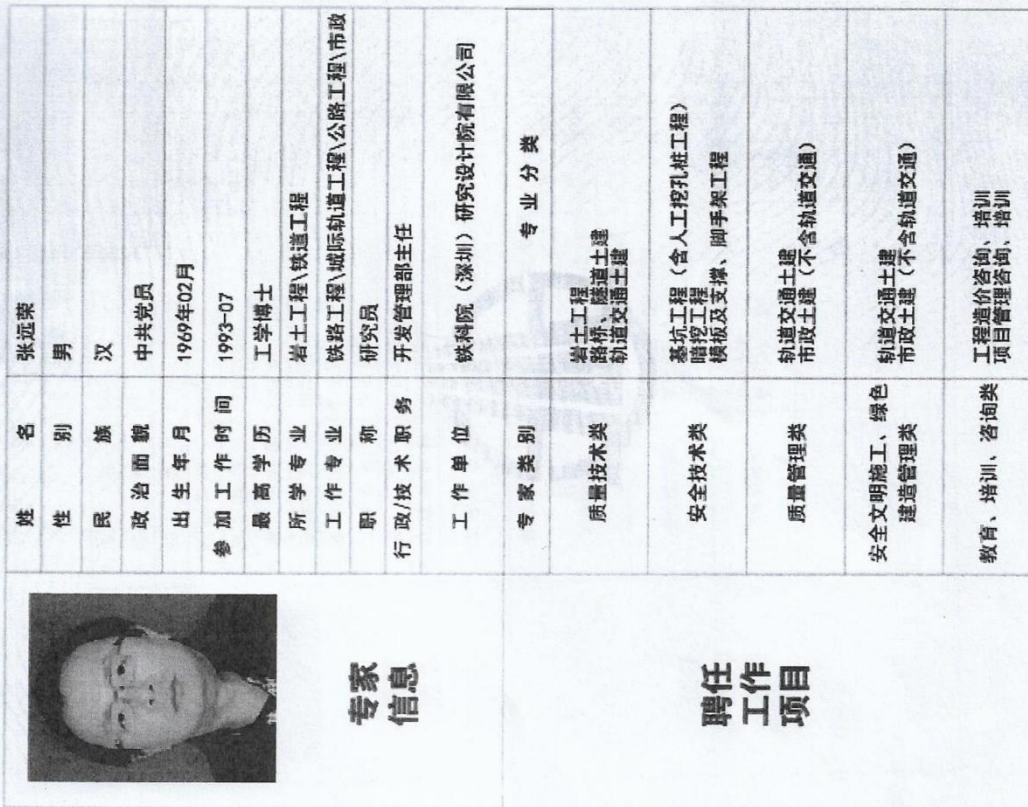 专家
信息
姓名 张远荣
性别 男
民族 汉
政治面貌 中共党员
出生年月 1969年02月
参加工作时间 1993-07
最高学历 工学博士
所学专业 岩土工程\铁道工程
工作专业 铁路工程\城际轨道工程\公路工程\市政
职称 研究员
行政/技术职务 开发管理部主任
工作单位 铁科院（深圳）研究设计院有限公司
聘任
工作
项目
专家类别 专业分类
质量技术类
岩土工程
路桥、隧道土建
轨道交通土建
安全技术类
基坑工程（含人工挖孔桩工程）
暗挖工程
模板及支撑、脚手架工程
质量管理类
轨道交通土建
市政土建（不含轨道交通）
安全文明施工、绿色
建造管理类
轨道交通土建
市政土建（不含轨道交通）
教育、培训、咨询类
工程造价咨询、培训
项目管理咨询、培训